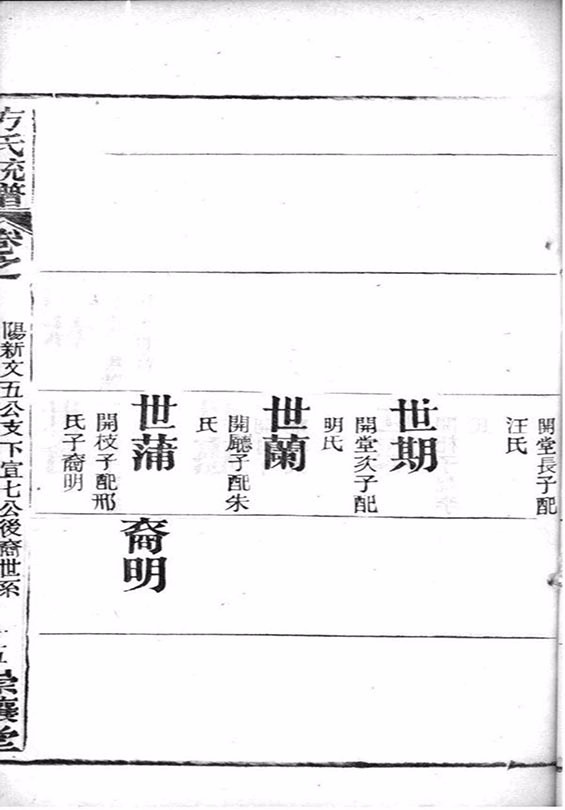 開堂長子配
汪氏
世期
開堂次子配
明氏
世蘭
開廳子配朱
氏
世蒲
開枝子配邢
氏子裔明
裔明
方氏統譜
卷之
陽新文五公支下宣七公後裔世系